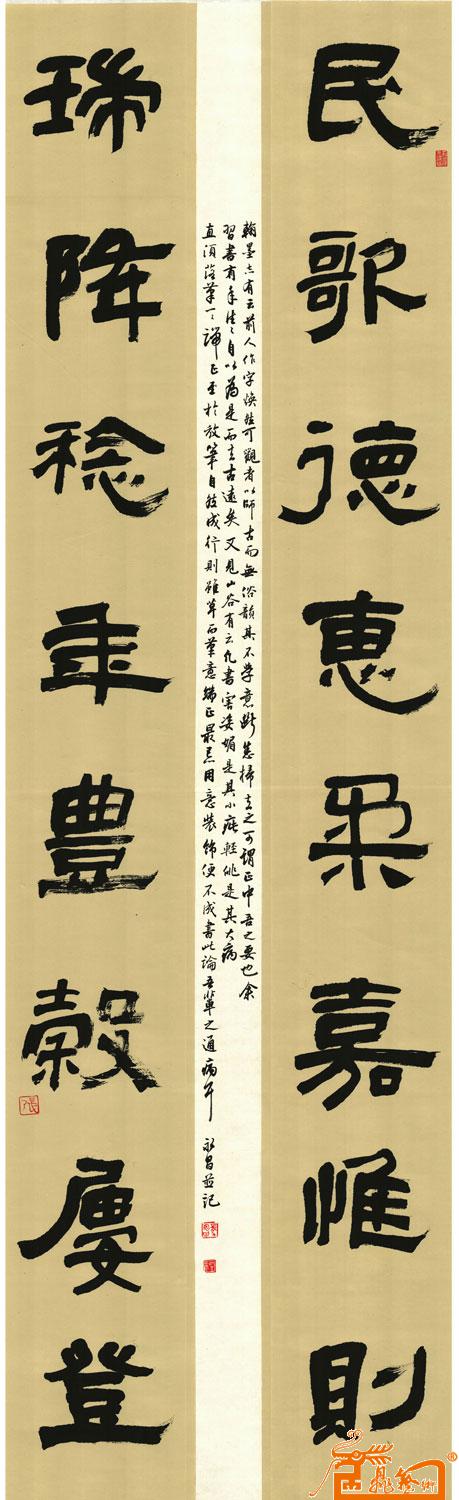 民歌德惠柔嘉惟則
翰墨志有云前人作字煥然可觀者以師古而無俗韻其不學意斷悉掃去之可謂正中吾之要也余
習書有年往往自以為是而去古遠矣又見山谷有云凡書害姿媚是其小疵輕佻是其大病
直須落筆一一端正至於放筆自然成行則雖草而筆意端正最忌用意裝飾便不成書此論吾輩之通病耳
永昌並記
瑞降稔年豊穀屢登
張